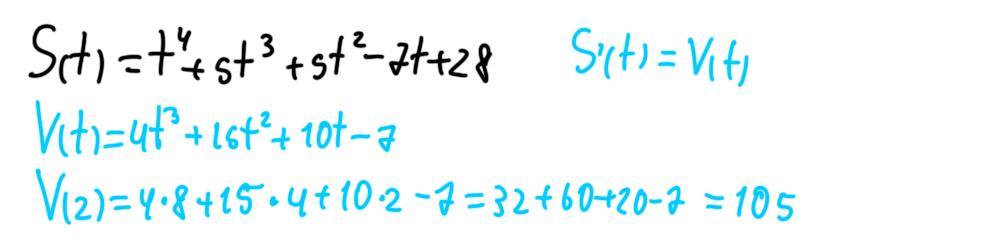 S(t) = t⁴ + 5t³ + 5t² - 7t + 28 S'(t) = V(t)
V(t) = 4t³ + 15t² + 10t - 7
V(2) = 4·8 + 15·4 + 10·2 - 7 = 32 + 60 + 20 - 7 = 105